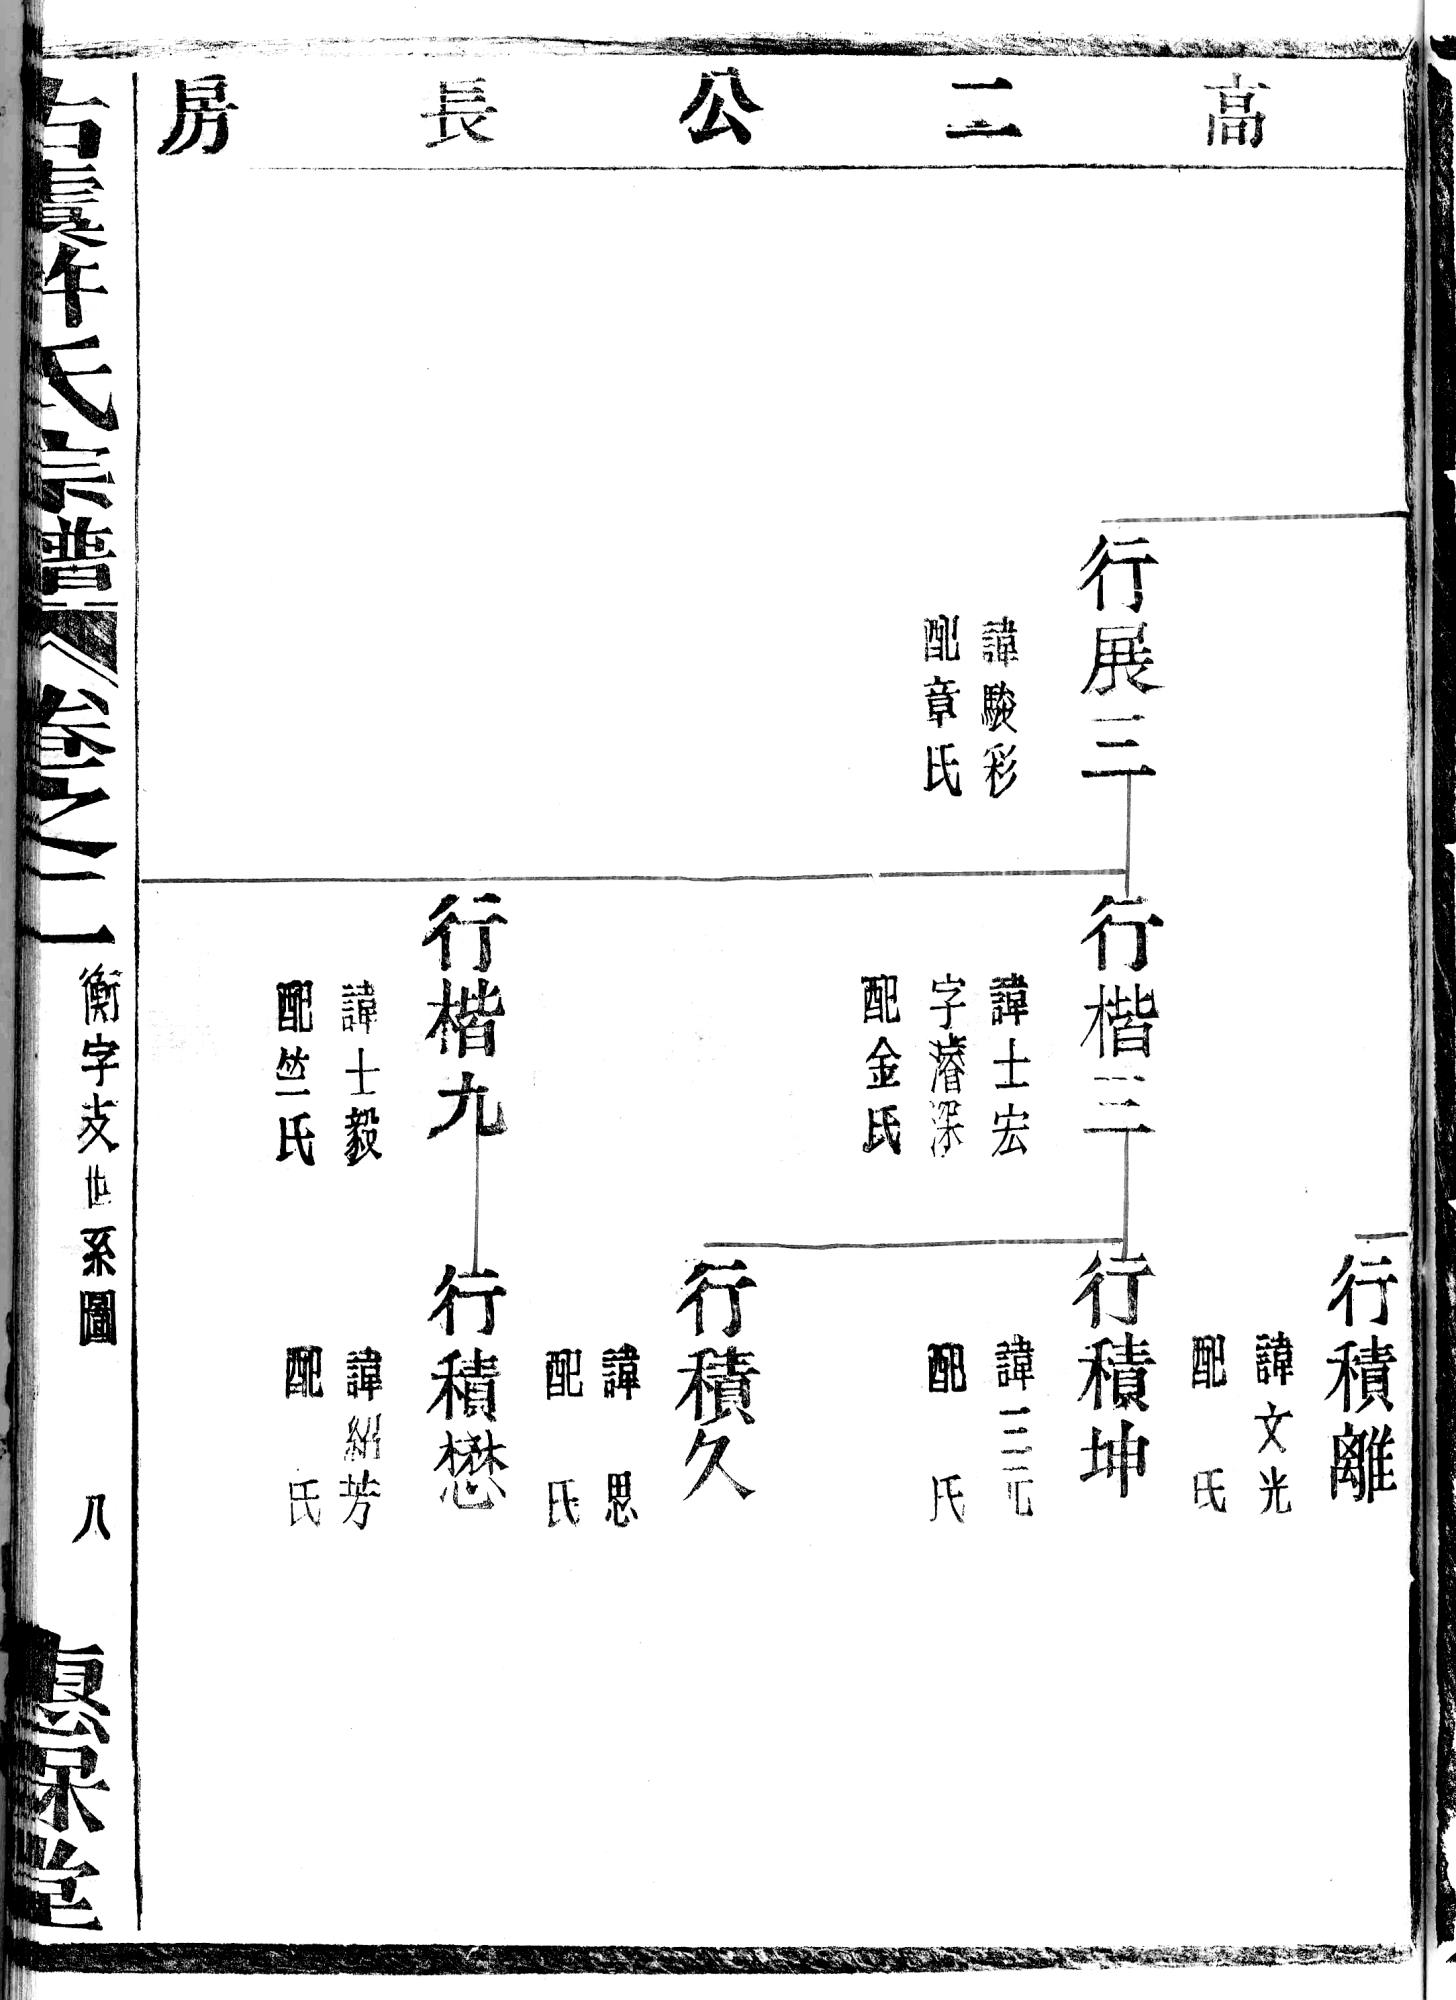 高二公長房
行展三
諱駿彩
配章氏
行楷三
諱士宏
字濬深
配金氏
行楷九
諱士毅
配竺氏
行積離
諱文光
配　氏
行積坤
諱三元
配　氏
行積久
諱　思
配　氏
行積懋
諱紹芳
配　氏
古虞許氏宗譜
卷之二
衡字支世系圖
八
堂